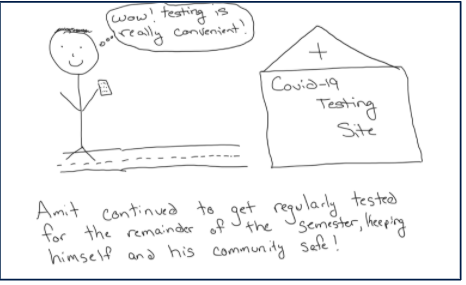 Wow! testing is
really convenient!
Covid-19
Testing
Site
Amit continued to get regularly tested
for the remainder of the semester, keeping
himself and his community safe!